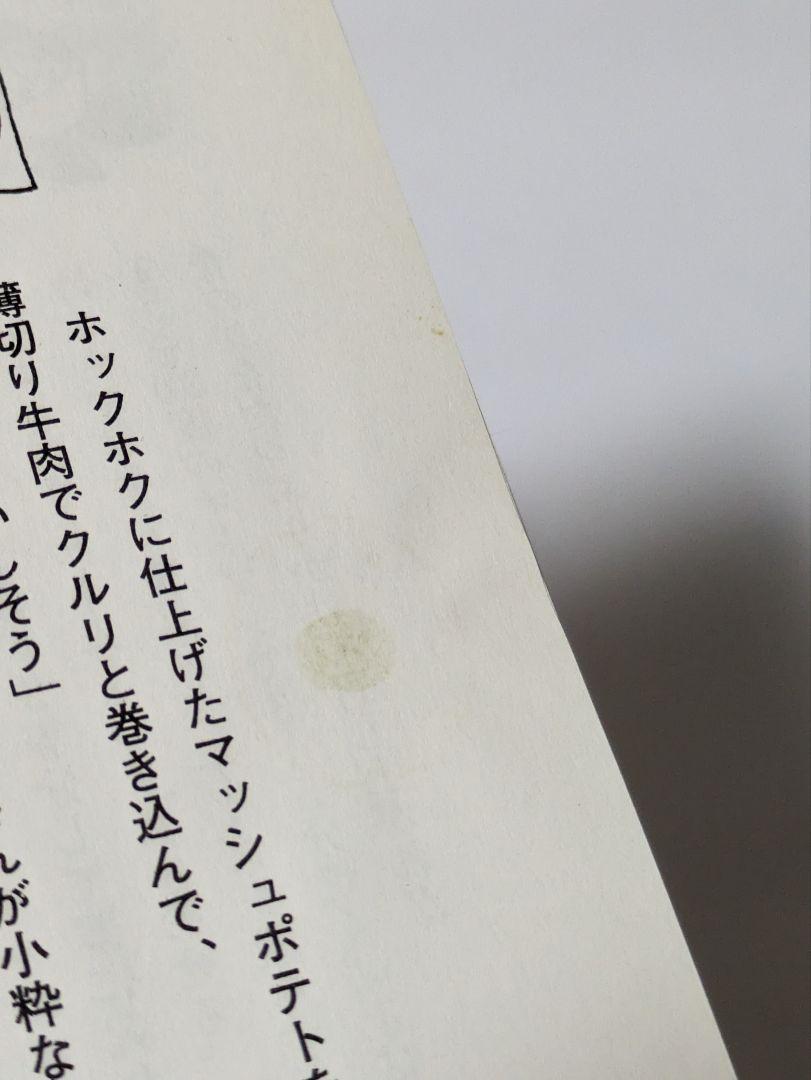 ホックホクに仕上げたマッシュポテトを
薄切り牛肉でクルリと巻き込んで、
しそう」
んが小粋な